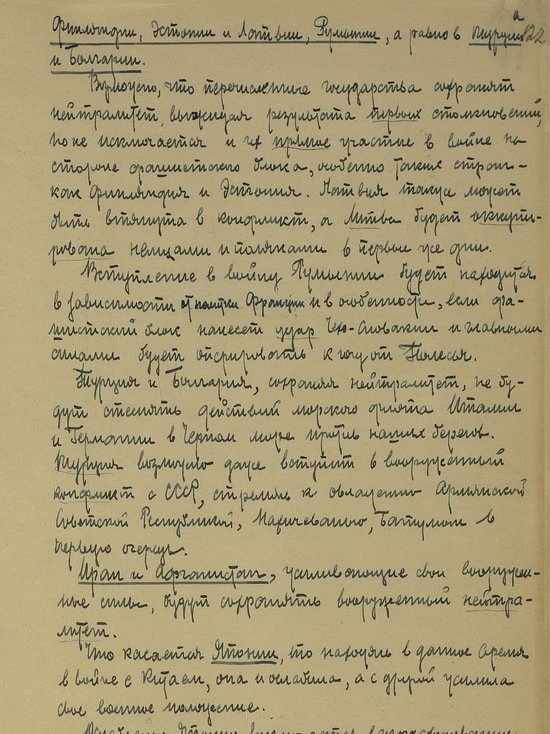 Финляндии, Эстонии и Латвии, Румынии, а равно в Турции 22
и Болгарии.
Возможно, что перечисленные государства сохранят
нейтралитет, выжидая результата первых столкновений,
но не исключается и их прямое участие в войне на
стороне фашистского блока, особенно таких стран-
как Финляндия и Эстония. Латвия также может
быть втянута в конфликт, а Литва будет оккупи-
рована немцами и поляками в первые же дни.
Вступление в войну Румынии будет находится
в зависимости от политики Франции и в особенности, если фа-
шистский блок нанесет удар Чехо-Словакии и главными
силами будет оперировать к югу от Полесья.
Турция и Болгария, сохраняя нейтралитет, не бу-
дут стеснять действий морского флота Италии
и Германии в Черном море против наших берегов.
Турция возможно даже вступит в вооруженный
конфликт с СССР, стремясь к овладению Армянской
Советской Республикой, Нахичеванью, Батумом в
первую очередь.
Иран и Афганистан, усиливающие свои вооружен-
ные силы, будут сохранять вооруженный нейтра-
литет.
Что касается Японии, то находясь в данное время
в войне с Китаем, она и ослабила, а с другой усилила
свое военное положение.